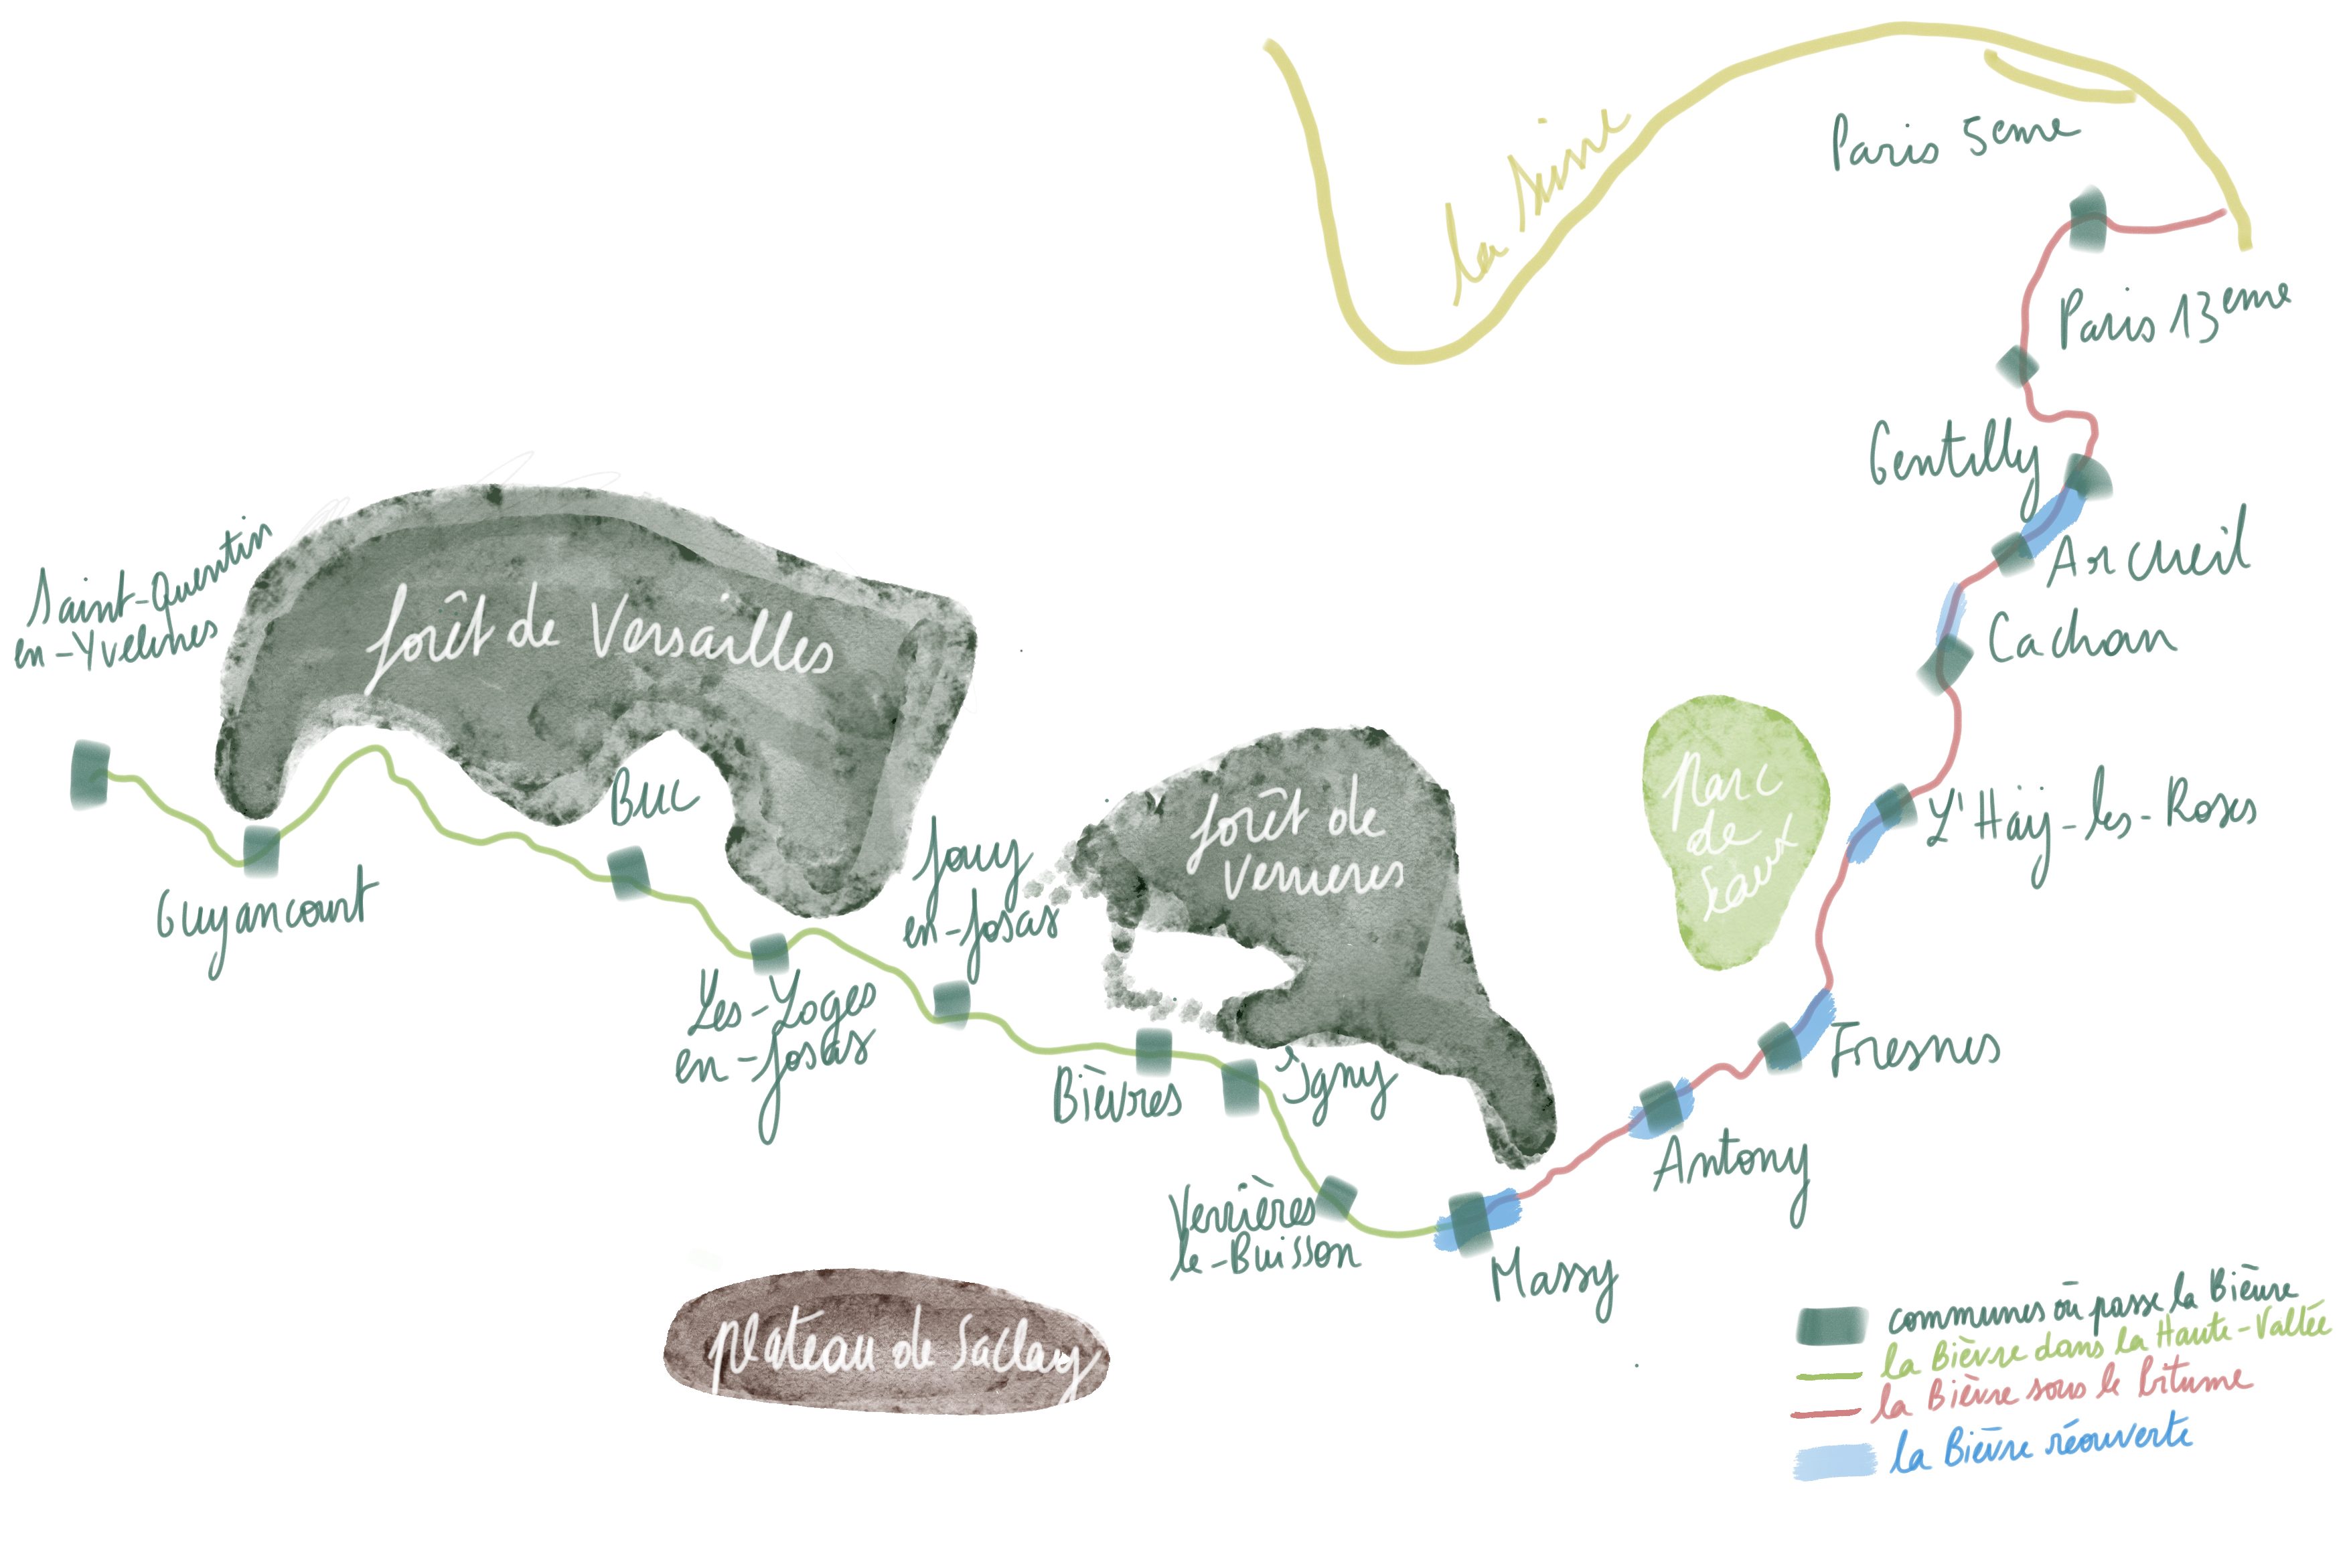 la Seine
Paris 5eme
Paris 13eme
Gentilly
Arcueil
Cachan
L'Haÿ-les-Roses
Parc
de
Sceaux
Fresnes
Antony
Massy
Saint-Quentin
en-Yvelines
forêt de Versailles
Guyancourt
Buc
Les-Loges
en-Josas
Jouy
en-Josas
forêt de
Verrieres
Bièvres
Igny
Verrières
le-Buisson
plateau de Saclay
communes où passe la Bièvre
la Bièvre dans la Haute-Vallée
la Bièvre sous le bitume
la Bièvre réouverte